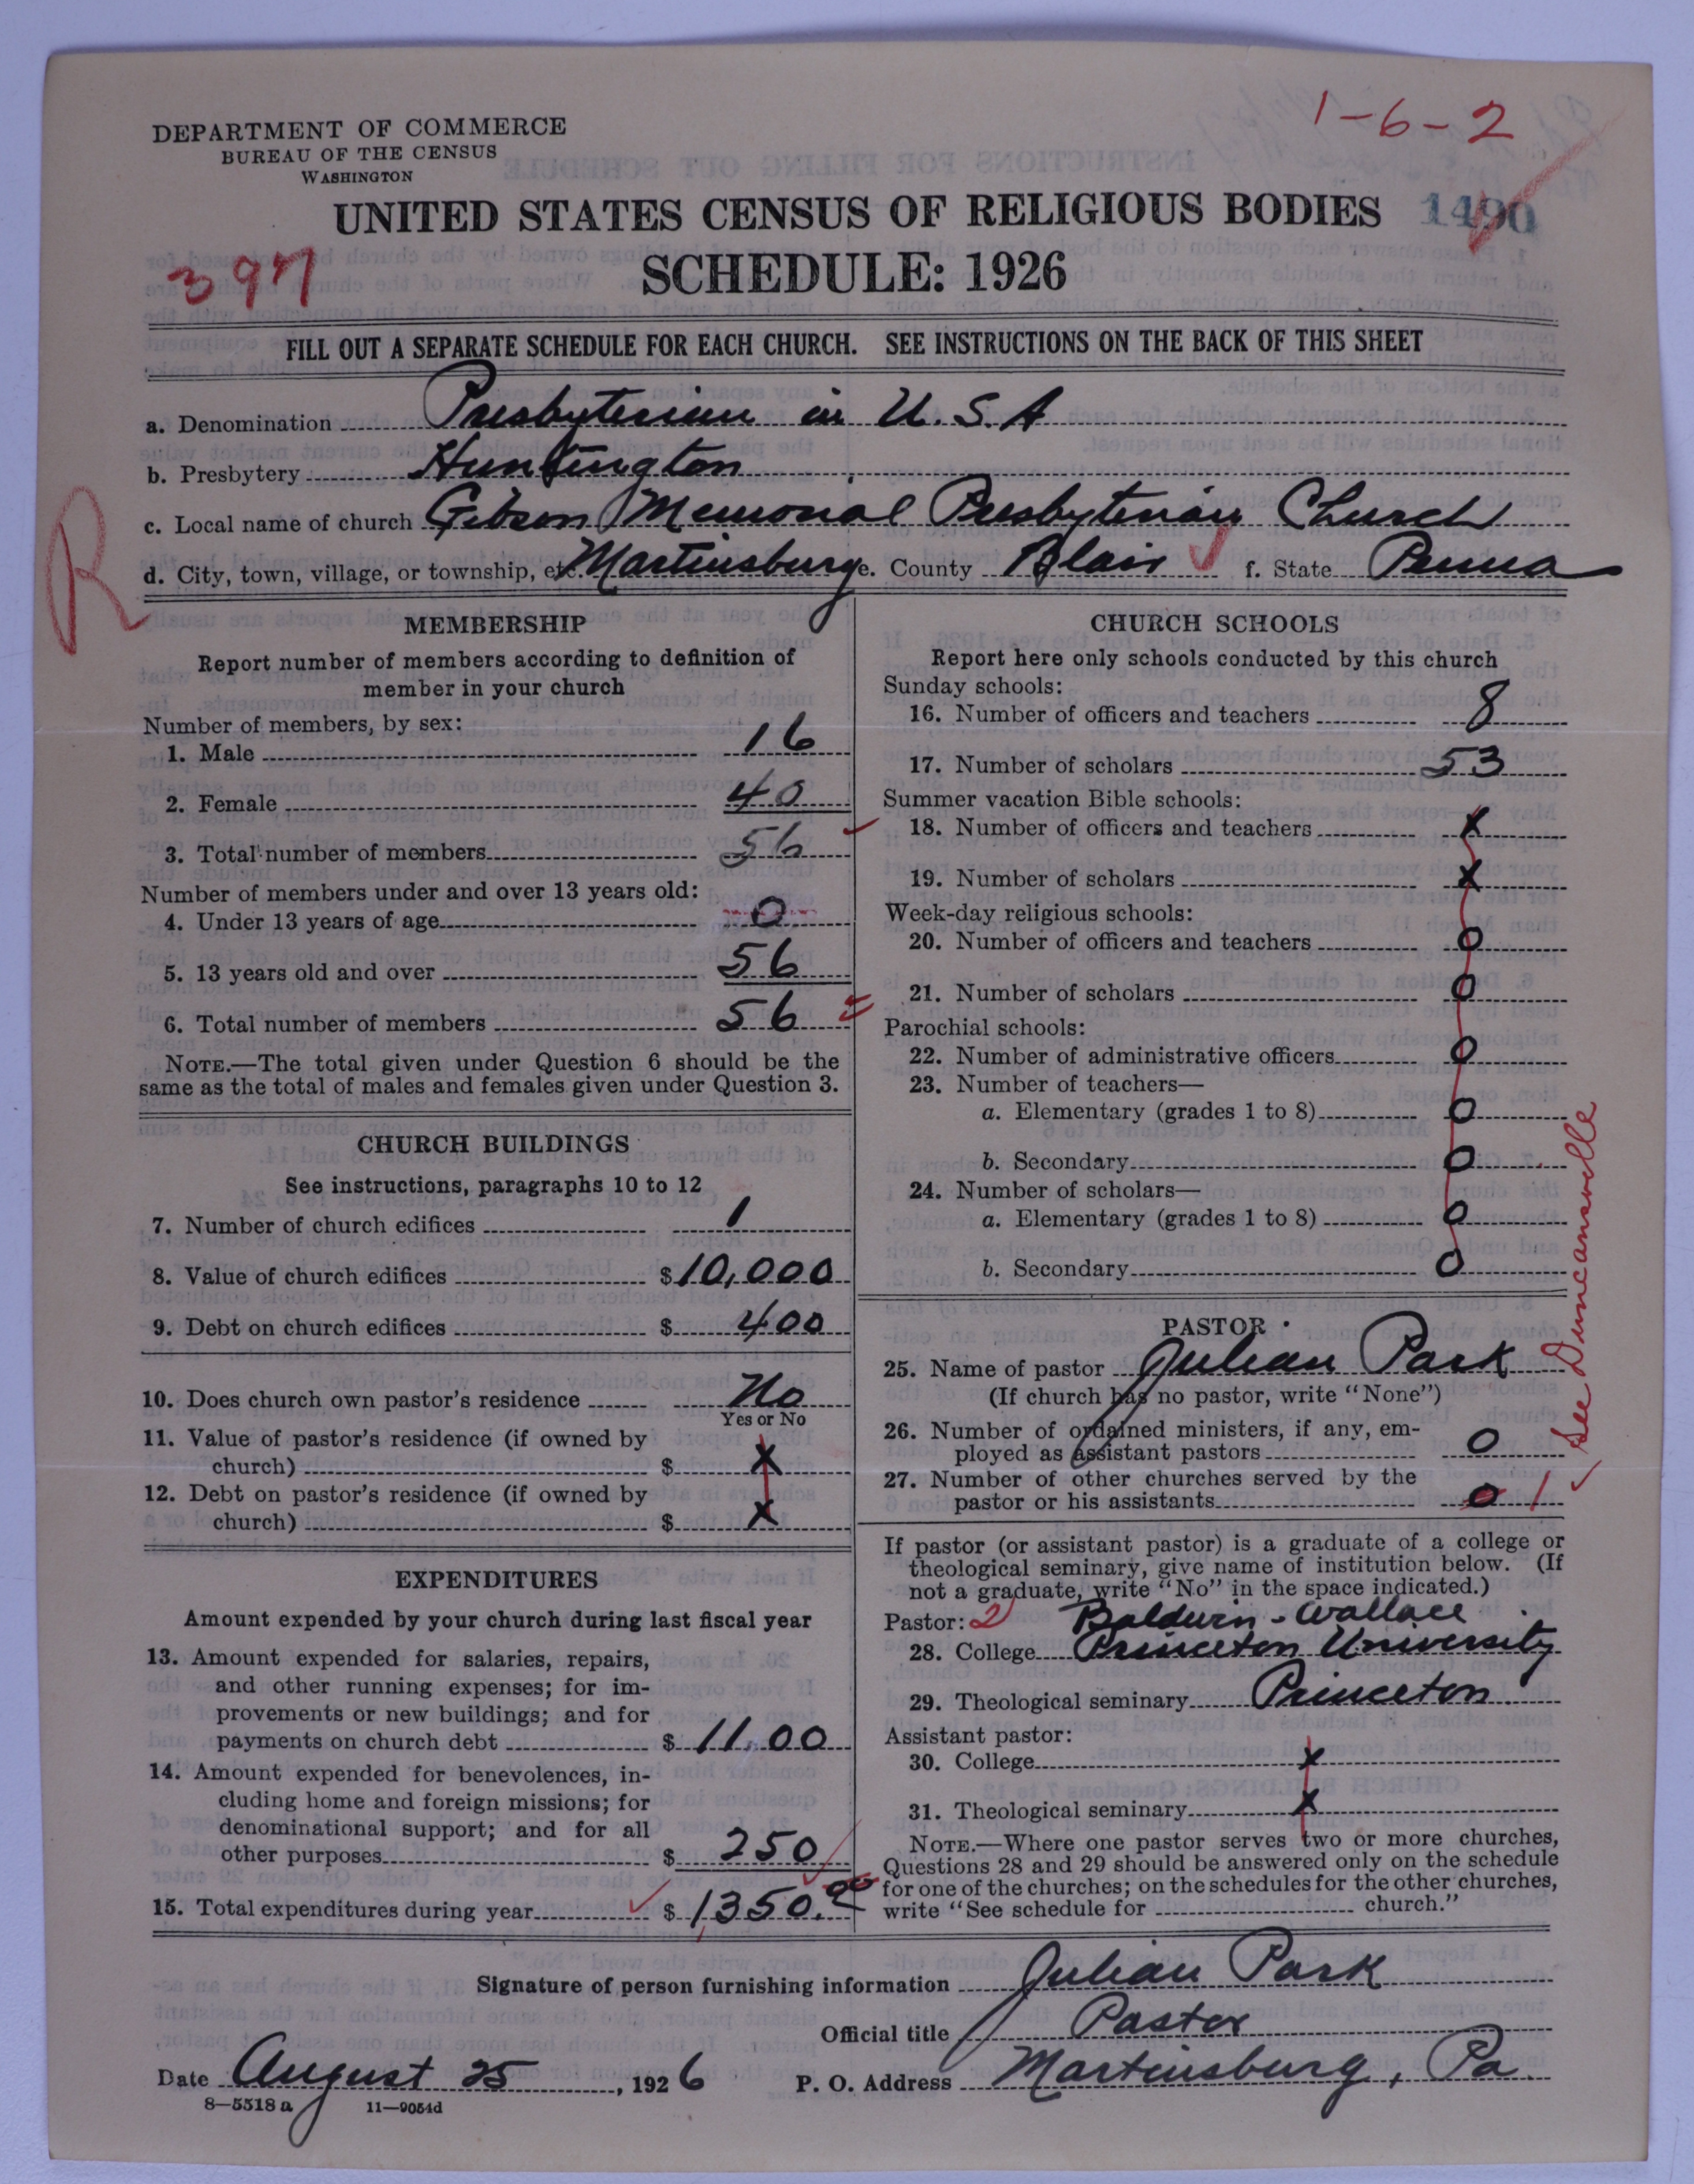 1-6-2
DEPARTMENT OF COMMERCE
BUREAU OF THE CENSUS
WASHINGTON
UNITED STATES CENSUS OF RELIGIOUS BODIES 1490
397
SCHEDULE: 1926
FILL OUT A SEPARATE SCHEDULE FOR EACH CHURCH. SEE INSTRUCTIONS ON THE BACK OF THIS SHEET
a. Denomination Presbyterian in U.S.A
b. Presbytery Huntington
R
c. Local name of church Gibson Memorial Presbyterian Church
d. City, town, village, or township, etc. Martinsburg e. County Blair f. State Penna
MEMBERSHIP
Report number of members according to definition of
member in your church
Number of members, by sex:
1. Male 16
2. Female 40
3. Total number of members 56
Number of members under and over 13 years old:
4. Under 13 years of age 0
5. 13 years old and over 56
6. Total number of members 56
NOTE.—The total given under Question 6 should be the
same as the total of males and females given under Question 3.
CHURCH BUILDINGS
See instructions, paragraphs 10 to 12
7. Number of church edifices 1
8. Value of church edifices $10,000
9. Debt on church edifices $ 400
10. Does church own pastor's residence No
Yes or No
11. Value of pastor's residence (if owned by
church) $ x
12. Debt on pastor's residence (if owned by
church) $ x
EXPENDITURES
Amount expended by your church during last fiscal year
13. Amount expended for salaries, repairs,
and other running expenses; for im-
provements or new buildings; and for
payments on church debt $ 11.00
14. Amount expended for benevolences, in-
cluding home and foreign missions; for
denominational support; and for all
other purposes $ 250
15. Total expenditures during year $ 1350.00
CHURCH SCHOOLS
Report here only schools conducted by this church
Sunday schools:
16. Number of officers and teachers 8
17. Number of scholars 53
Summer vacation Bible schools:
18. Number of officers and teachers x
19. Number of scholars x
Week-day religious schools:
20. Number of officers and teachers 0
21. Number of scholars 0
Parochial schools:
22. Number of administrative officers 0
23. Number of teachers—
a. Elementary (grades 1 to 8) 0
b. Secondary 0
24. Number of scholars—
a. Elementary (grades 1 to 8) 0
b. Secondary 0
See Duncansville
PASTOR
25. Name of pastor Julian Park
(If church has no pastor, write "None")
26. Number of ordained ministers, if any, em-
ployed as assistant pastors 0
27. Number of other churches served by the
pastor or his assistants 0 1
If pastor (or assistant pastor) is a graduate of a college or
theological seminary, give name of institution below. (If
not a graduate, write "No" in the space indicated.)
Pastor: 2 Baldwin-Wallace
28. College Princeton University
29. Theological seminary Princeton
Assistant pastor:
30. College x
31. Theological seminary x
NOTE.—Where one pastor serves two or more churches,
Questions 28 and 29 should be answered only on the schedule
for one of the churches; on the schedules for the other churches,
write "See schedule for church."
Signature of person furnishing information Julian Park
Official title Pastor
Date August 25, 1926 P. O. Address Martinsburg, Pa.
8—5518a 11—9054d